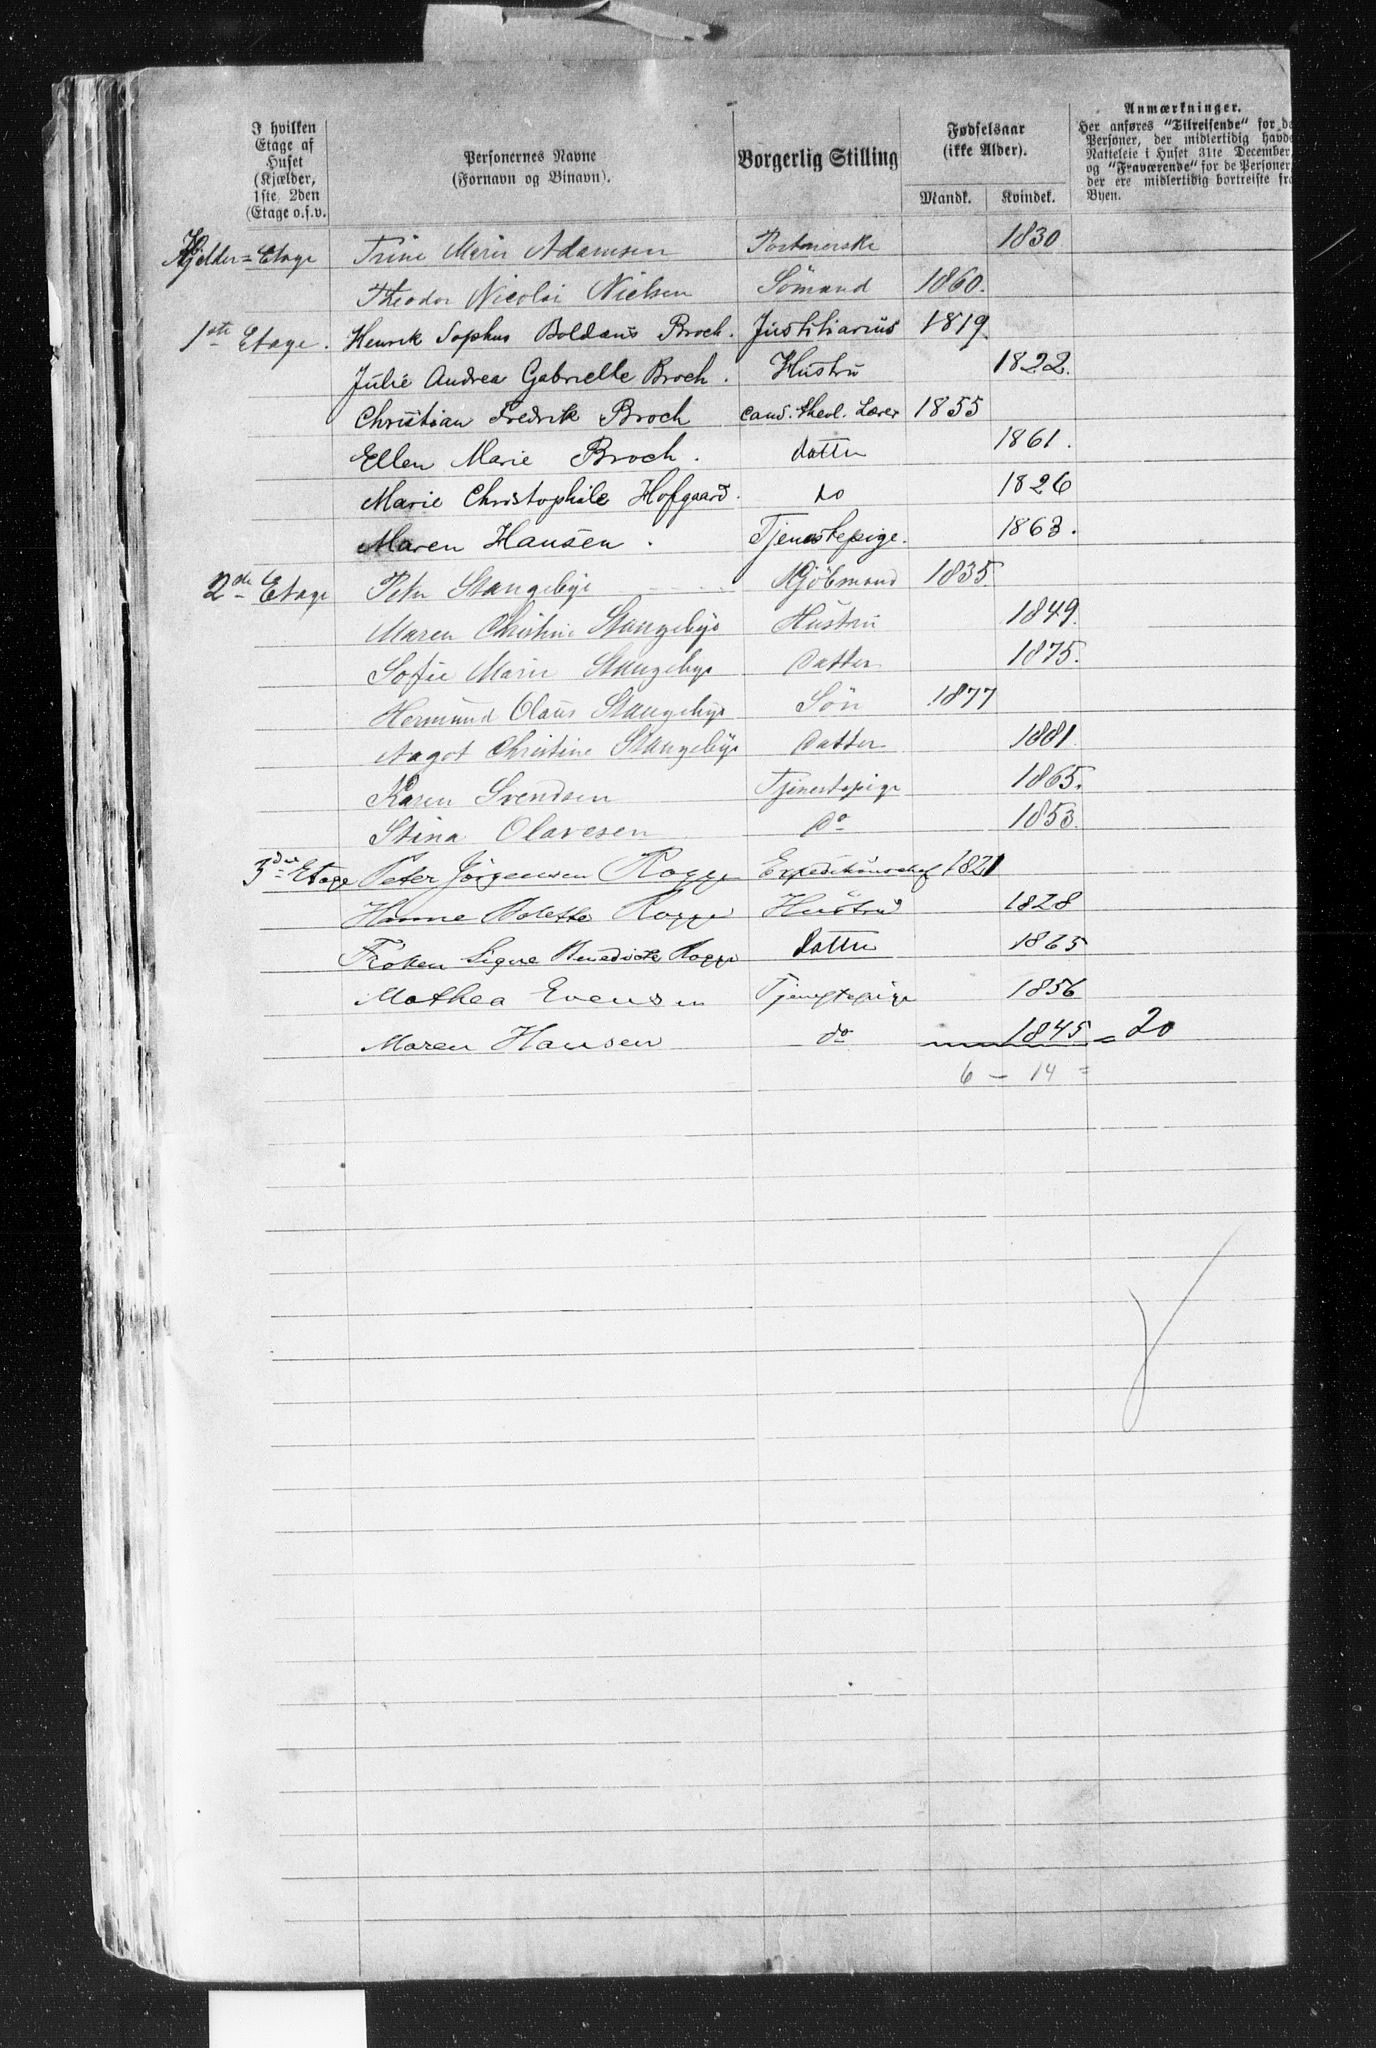 I hvilken Etage af Huset (Kjælder, 1ste 2den Etage o.s.v.
Personernes Navne (Fornavn og Binavn).
Borgerlig Stilling
Fødselsaar (ikke Alder).
Mandk. Kvindek.
Anmærkninger.
Her anføres "Tilreisende" for de
Personer, der midlertidig havde
Natteleie i Huset 31te December,
og "Fraværende" for de Personer,
der ere midlertidig bortreiste fra
Byen.
Kjelder=Etage Trine Marie Adamsen Portnerske 1830
Theodor Nicolai Nielsen Sömand 1860.
1ste Etage. Henrik Sophus Boldaüs Broch. Justitiariüs 1819.
Julie Andrea Gabrielle Broch. Hustrü 1822.
Christian Fredrik Broch cand. theol. Lærer 1855
Ellen Marie Broch. datter 1861.
Marie Christophile Hofgaard. do 1826
Maren Hansen. Tjenestepige. 1863.
2den Etage Peter Stangebye Kjöbmand 1835.
Maren Christine Stangebye Hüstrü 1849.
Sofie Marie Stangebye Datter 1875.
Hermünd Olaüs Stangebye Sön 1877
Aagot Christine Stangebye Datter 1881.
Karen Svendsen Tjenestepige 1865.
Stina Olavesen Do 1853.
3die Etage Peter Jörgensen Rogge Expeditionschef 1821
Hanne Bolette Rogge Hüstrü 1828
Fröken Signe Benedicte Rogge Datter 1865
Mathea Evensen Tjenestepige 1856
Maren Hansen do 1845 = 20
6 - 14 =